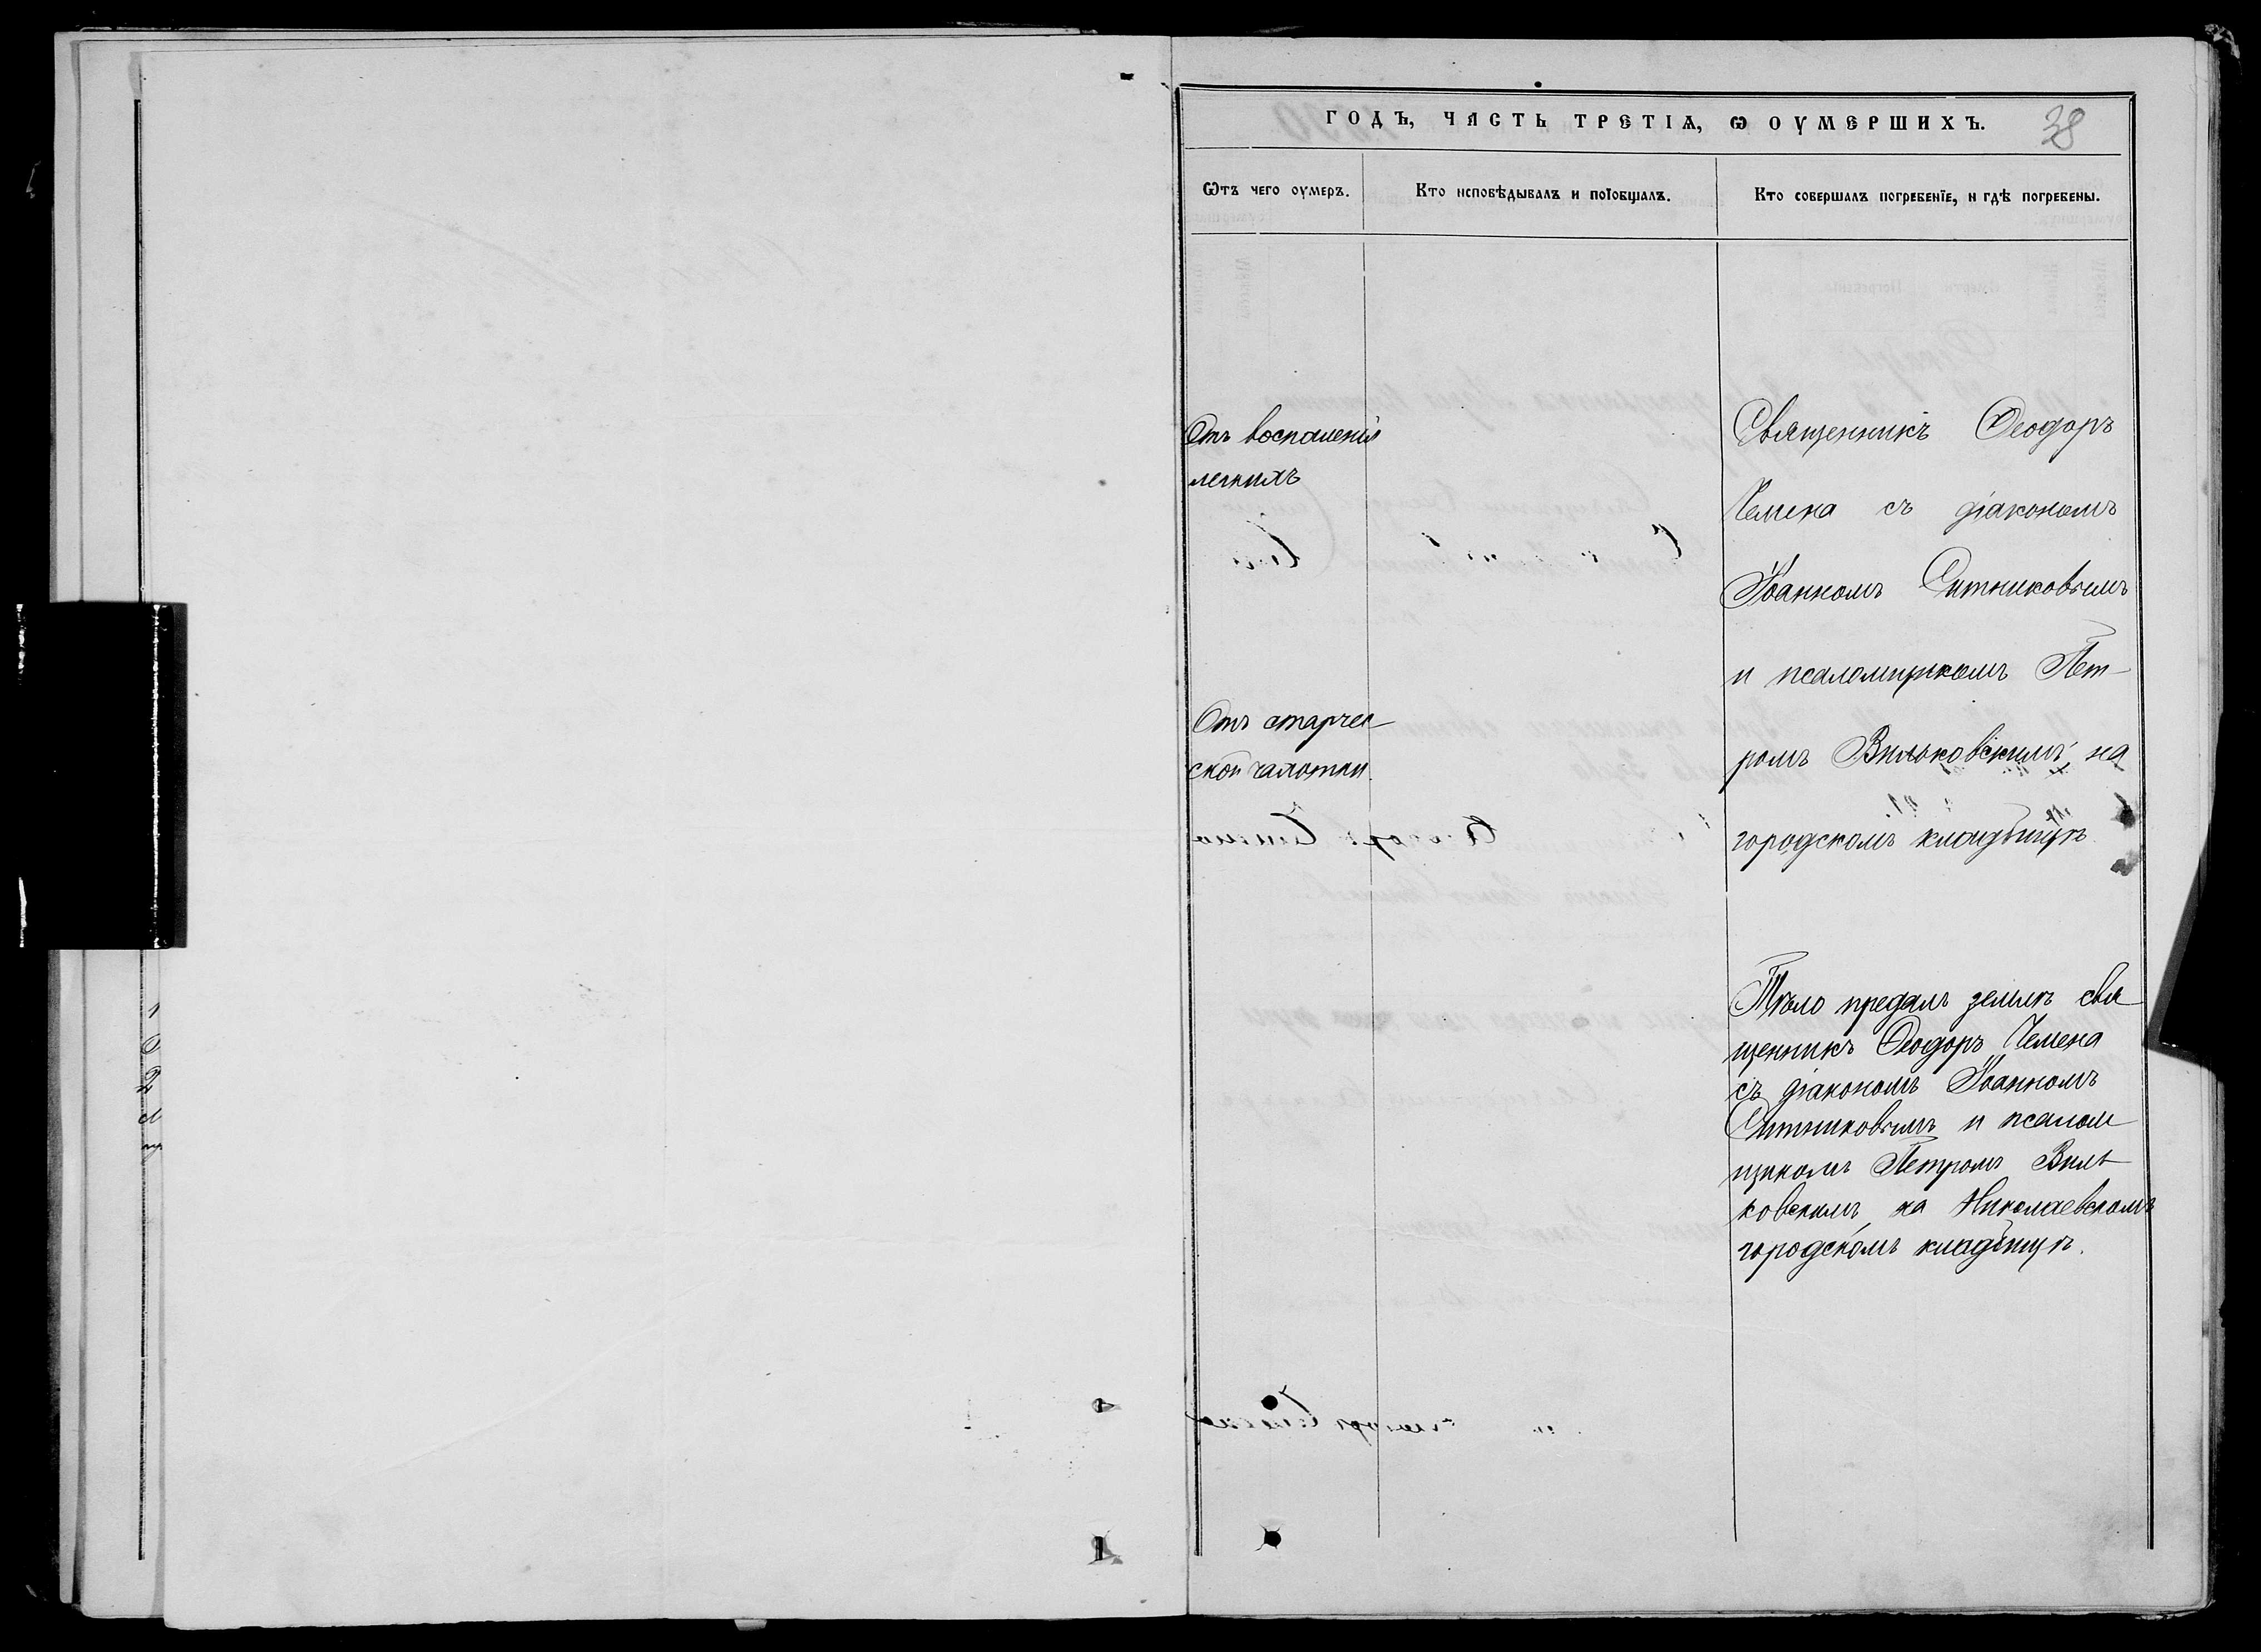 ГОДЪ, ЧАСТЬ ТРЕТІѦ, Ѡ ОУМЕРШИХЪ.
38
Ѿтъ чего оумеръ.
Кто исповѣдывалъ и поїобщалъ.
Кто совершалъ погребенїе, и гдѣ погребены.
Отъ воспаленія
легкихъ
Отъ старчес
ской чахотки
Священникъ Ѳеодоръ
Чемена съ діакономъ
Іоанномъ Ситниковымъ
и псаломщикомъ Пет-
ромъ Вильковскимъ, на
городскомъ кладбищѣ
Тѣло предалъ землѣ свя
щенникъ Ѳеодоръ Чемена
съ діакономъ Іоанномъ
Ситниковымъ и псалом
щикомъ Петромъ Виль
ковскимъ на Николаевскомъ
городскомъ кладбищѣ.